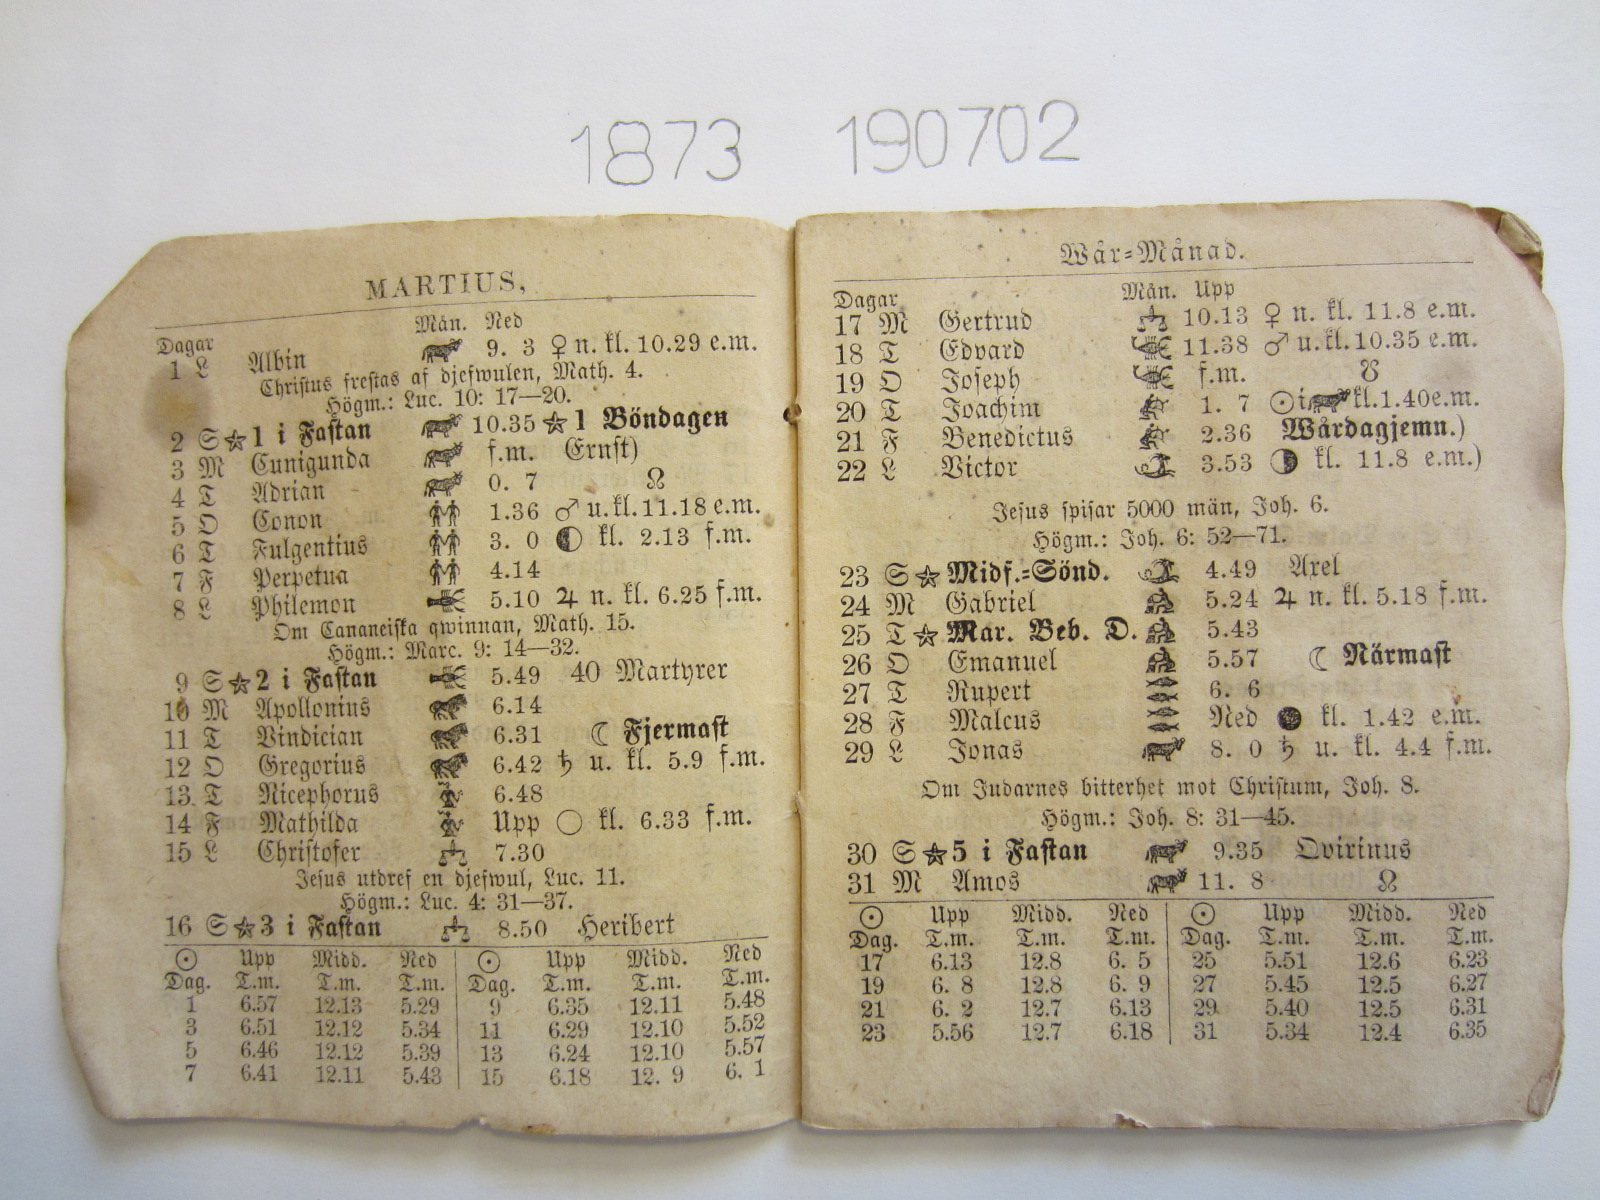 1873 190702
MARTIUS,
Mån. Ned
Dagar
1 L Albin 9. 3 ♀ n. kl. 10.29 e.m.
Christus frestas af djefwulen, Math. 4.
Högm.: Luc. 10: 17—20.
2 S ☆ 1 i Fastan 10.35 ☆ 1 Böndagen
3 M Cunigunda f.m. Ernst)
4 T Adrian 0. 7 ☊
5 O Conon 1.36 ♂ u. kl. 11.18 e.m.
6 T Fulgentius 3. 0 ◐ kl. 2.13 f.m.
7 F Perpetua 4.14
8 L Philemon 5.10 ♃ n. kl. 6.25 f.m.
Om Cananeiska qwinnan, Math. 15.
Högm.: Marc. 9: 14—32.
9 S ☆ 2 i Fastan 5.49 40 Martyrer
10 M Apollonius 6.14
11 T Vindician 6.31 ☾ Fjermast
12 O Gregorius 6.42 ♄ u. kl. 5.9 f.m.
13 T Nicephorus 6.48
14 F Mathilda Upp ○ kl. 6.33 f.m.
15 L Christofer 7.30
Jesus utdref en djefwul, Luc. 11.
Högm.: Luc. 4: 31—37.
16 S ☆ 3 i Fastan 8.50 Heribert
☉ Upp Midd. Ned ☉ Upp Midd. Ned
Dag. T.m. T.m. T.m. Dag. T.m. T.m. T.m.
1 6.57 12.13 5.29 9 6.35 12.11 5.48
3 6.51 12.12 5.34 11 6.29 12.10 5.52
5 6.46 12.12 5.39 13 6.24 12.10 5.57
7 6.41 12.11 5.43 15 6.18 12. 9 6. 1
Wår=Månad.
Mån. Upp
Dagar
17 M Gertrud 10.13 ♀ n. kl. 11.8 e.m.
18 T Edvard 11.38 ♂ u. kl. 10.35 e.m.
19 O Joseph f.m. ☋
20 T Joachim 1. 7 ☉ i kl. 1.40 e.m.
21 F Benedictus 2.36 Wårdagjemn.)
22 L Victor 3.53 ◑ kl. 11.8 e.m.)
Jesus spisar 5000 män, Joh. 6.
Högm.: Joh. 6: 52—71.
23 S ☆ Midf.=Sönd. 4.49 Axel
24 M Gabriel 5.24 ♃ n. kl. 5.18 f.m.
25 T ☆ Mar. Beb. D. 5.43
26 O Emanuel 5.57 ☾ Närmast
27 T Rupert 6. 6
28 F Malcus Ned ● kl. 1.42 e.m.
29 L Jonas 8. 0 ♄ u. kl. 4.4 f.m.
Om Judarnes bitterhet mot Christum, Joh. 8.
Högm.: Joh. 8: 31—45.
30 S ☆ 5 i Fastan 9.35 Qvirinus
31 M Amos 11. 8 ☊
☉ Upp Midd. Ned ☉ Upp Midd. Ned
Dag. T.m. T.m. T.m. Dag. T.m. T.m. T.m.
17 6.13 12.8 6. 5 25 5.51 12.6 6.23
19 6. 8 12.8 6. 9 27 5.45 12.5 6.27
21 6. 2 12.7 6.13 29 5.40 12.5 6.31
23 5.56 12.7 6.18 31 5.34 12.4 6.35